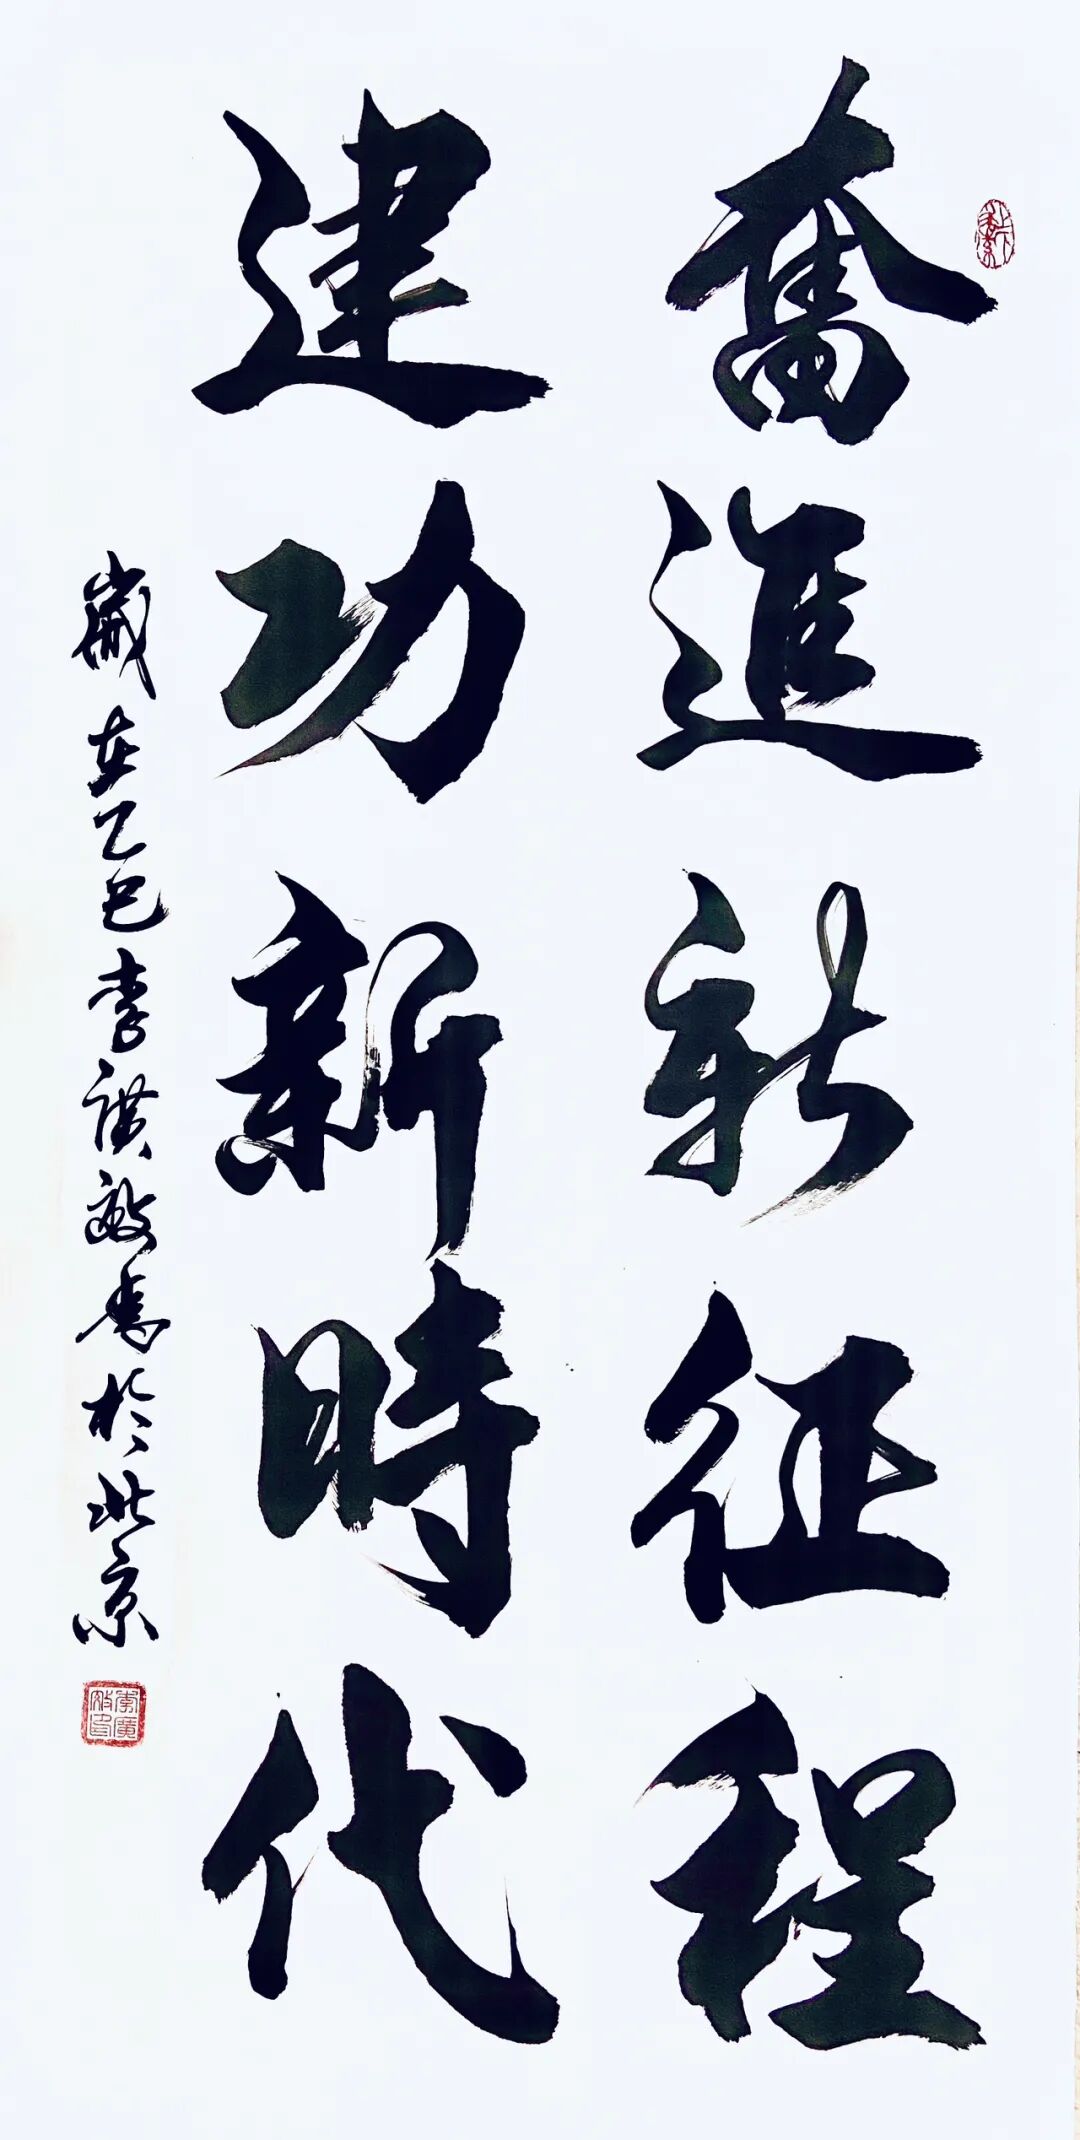 奮進新征程
建功新時代
歲在乙巳李广敏書於北京
李廣敏印